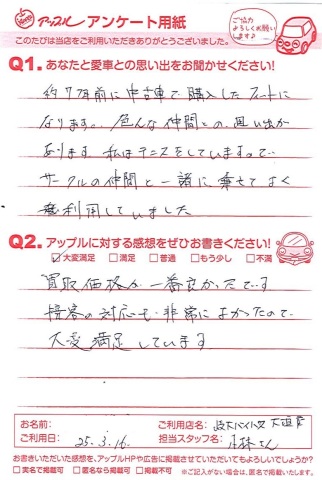 アップル アンケート用紙
ご協力
よろしくお願い
します♪
このたびは当店をご利用いただきありがとうございました。
Q1. あなたと愛車との思い出をお聞かせください!
約7年前に中古車で購入したフートに
なります。色んな仲間との思い出が
あります 私はテニスをしていますので
サークルの仲間と一緒に乗せてよく
利用していました
Q2. アップルに対する感想をぜひお書きください!
☑大変満足 □満足 □普通 □もう少し □不満
買取価格が一番良かったです
接客の対応も非常によかったので
大変満足しています
お名前:
ご利用店名: 岐大バイパス
ご利用日: 25.3.16
担当スタッフ名: さん
お書きいただいた感想を、アップルHPや広告に掲載させていただいてもよろしいでしょうか?
□実名で掲載可 □匿名なら掲載可 □掲載不可 ※ご記入がない場合は、匿名で掲載いたします。